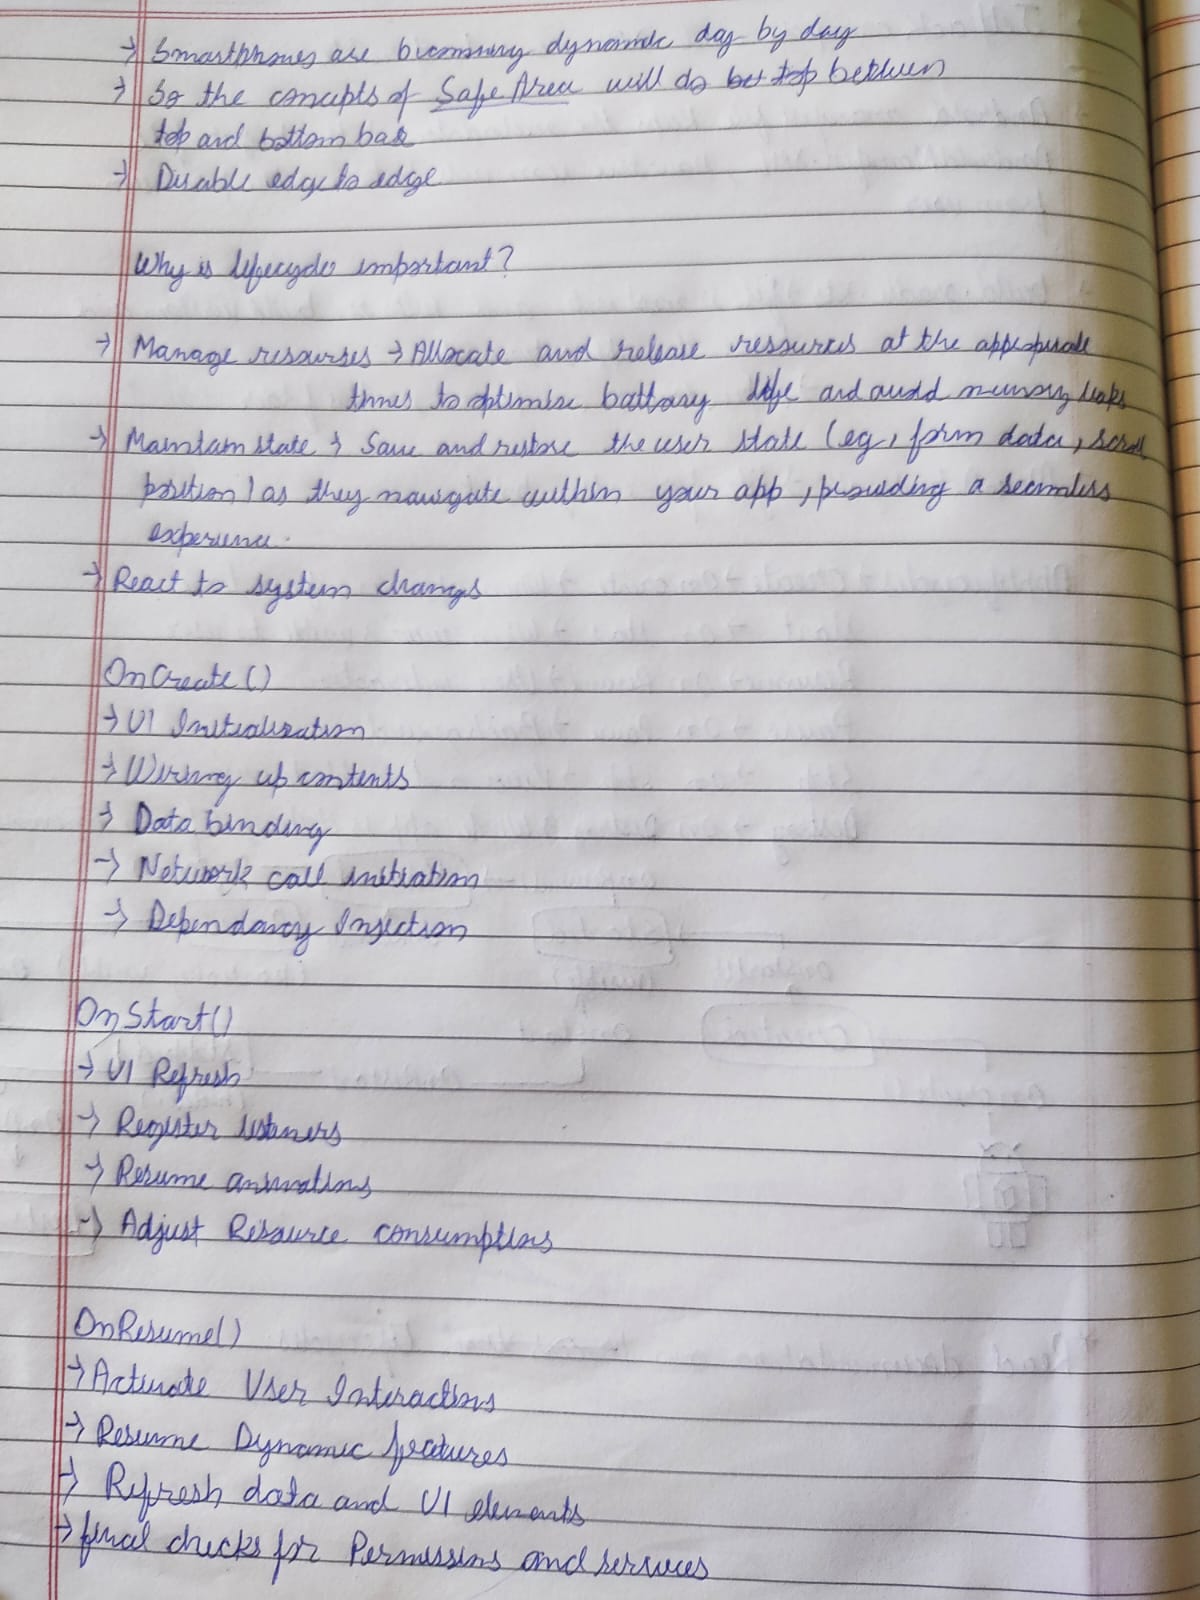 → Smartphones are becoming dynamic day by day
→ So the concepts of Safe Area will do bet top between
top and bottom bar
→ Disable edge to edge
Why is lifecycle important?
→ Manage resourses → Allocate and release ressources at the appropriate
times to optimise battary life and avoid memory leaks
→ Maintain state → Save and restore the user state (eg, form data, scroll
position) as they navigate within your app, providing a seamless
experience.
→ React to system changes
OnCreate ()
→ UI Initialization
→ Wiring up contents
→ Data binding
→ Network call initiation
→ Dependancy Injection
OnStart()
→ UI Refresh
→ Register listeners
→ Resume animations
→ Adjust Resource consumptions
OnResume()
→ Activate User Interactions
→ Resume Dynamic features
→ Refresh data and UI elements
→ final checks for Permissions and services